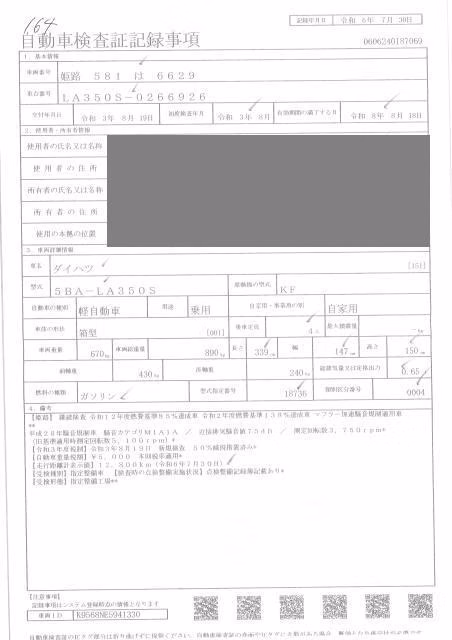 1.64
記録年月日 令和 6年 7月 30日
自動車検査証記録事項
0606240187069
1. 基本情報
車両番号 姫路 581 は 6629
車台番号 LA350S-0266926
交付年月日 令和 3年 8月 19日 初度検査年月 令和 3年 8月 有効期間の満了する日 令和 8年 8月 18日
2. 使用者・所有者情報
使用者の氏名又は名称
使用者の住所
所有者の氏名又は名称
所有者の住所
使用の本拠の位置
3. 車両詳細情報
車名 ダイハツ [151]
型式 5BA-LA350S 原動機の型式 KF
自動車の種別 軽自動車 用途 乗用 自家用・事業用の別 自家用
車体の形状 箱型 [001] 乗車定員 4人 最大積載量 -kg
車両重量 670kg 車両総重量 890kg 長さ 339cm 幅 147cm 高さ 150cm
前軸重 430kg 後軸重 240kg 総排気量又は定格出力 0.65
燃料の種類 ガソリン 型式指定番号 18736 類別区分番号 0004
4. 備考
【姫路】 継続検査 令和12年度燃費基準85%達成車 令和2年度燃費基準138%達成車 マフラー加速騒音規制適用車
**
平成28年騒音規制車 騒音カテゴリM1A1A / 近接排気騒音値75dB / 測定回転数3,750rpm*
(旧基準適用時測定回転数5,100rpm)*
【令和3年度税制】令和3年8月19日 新規検査 50%減税措置済み*
【自動車重量税】¥5,000 本則税率適用*
【走行距離計表示値】12,800km (令和6年7月30日)
【受検種別】指定整備車 【検査時の点検整備実施状況】点検整備記録簿記載あり*
【受検形態】指定整備工場**
【注意事項】
記録事項はシステム登録時点の情報となります
車両ID K9568NE5941330